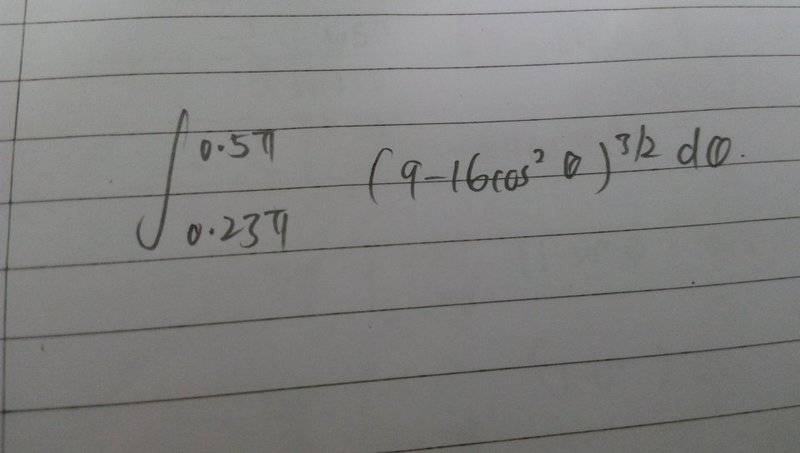 ∫_{0.23π}^{0.5π} (9-16cos² θ)^{3/2} dθ.